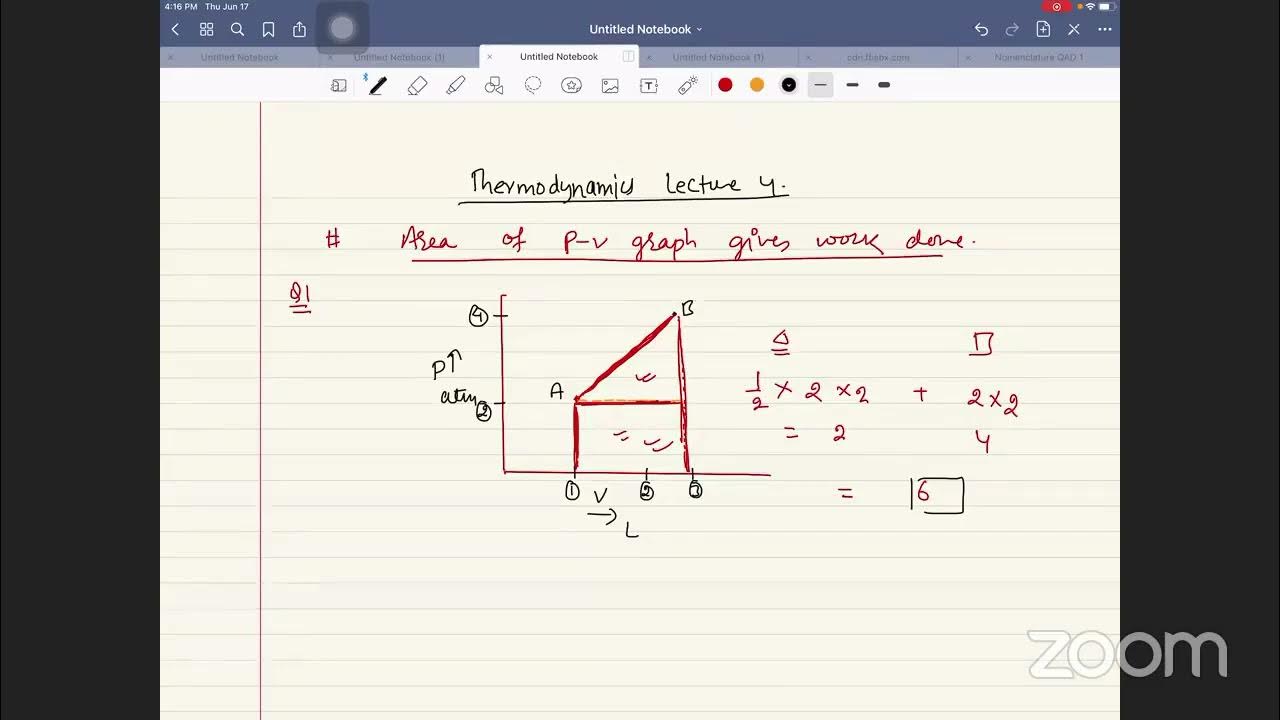 4:16 PM Thu Jun 17
Untitled Notebook
Untitled Notebook
Untitled Notebook (1)
Untitled Notebook
Untitled Notebook (1)
cdn.fbsbx.com
Nomenclature QAD 1
Thermodynamics Lecture 4.
# Area of P-V graph gives work done.
Q1
4
B
P↑
atm
2
A
1
2
3
V
→
L
△ □
1/2 × 2 × 2 + 2 × 2
= 2 4
= 6
zoom